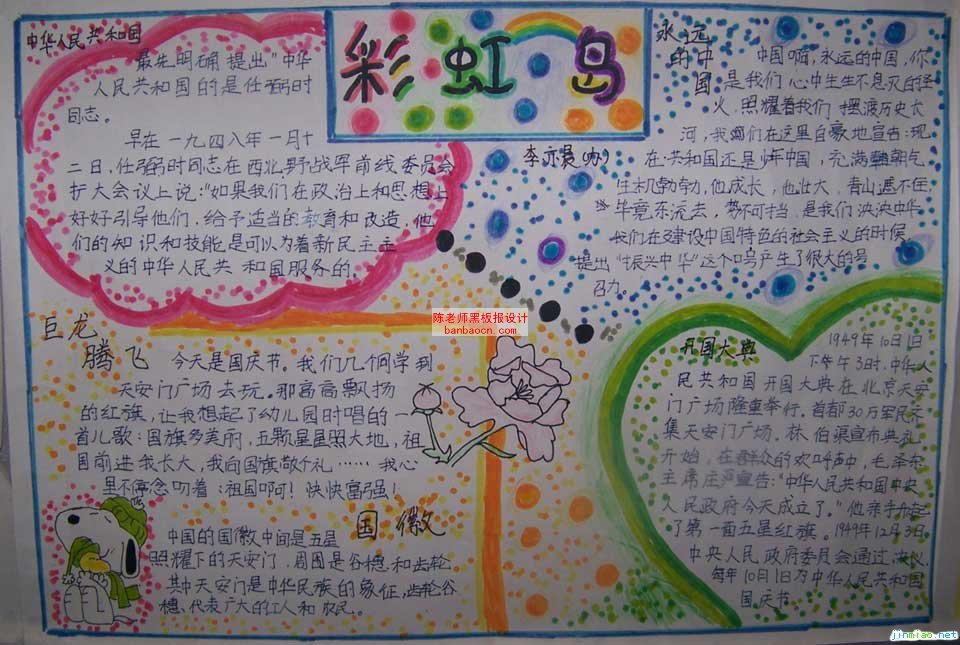 彩虹岛
李亦晨(办)
中华人民共和国
最先明确提出"中华
人民共和国的是任弼时
同志。
早在一九四八年一月十
二日,任弼时同志在西北野战军前线委员会
扩大会议上说:"如果我们在政治上和思想上
好好引导他们,给予适当的教育和改造,他
们的知识和技能是可以为着新民主主
义的中华人民共和国服务的
永远
的中
国
中国啊,永远的中国,你
是我们心中生生不息灭的圣
火,照耀着我们摆渡历史长
河,我们在这里自豪地宣告:现
在共和国还是少年中国,充满朝气
生机勃勃,他成长,他壮大,青山遮不住,
毕竟东流去,势不可挡,是我们泱泱中华
我们在建设中国特色的社会主义的时候
提出"振兴中华"这个口号产生了很大的号
召力。
陈老师黑板报设计
banbaocn.com
巨龙
腾飞
今天是国庆节。我们几个同学到
天安门广场去玩。那高高飘扬
的红旗,让我想起了幼儿园时唱的一
首儿歌:国旗多美丽,五颗星星照大地,祖
国前进我长大,我向国旗敬个礼……我心
里不停念叨着:祖国啊!快快富强!
国徽
中国的国徽中间是五星
照耀下的天安门,周围是谷穗和齿轮
其中天安门是中华民族的象征,齿轮谷
穗、代表广大的工人和农民。
开国大典
1949年10月1日
下午3时,中华人
民共和国开国大典在北京天安
门广场隆重举行。首都30万军民齐
集天安门广场。林伯渠宣布典礼
开始,在群众的欢呼声中,毛泽东
主席庄严宣告:"中华人民共和国中央
人民政府今天成立了。"他亲手升起
了第一面五星红旗。1949年12月3日
中央人民政府委员会通过决议,
每年10月1日为中华人民共和国
国庆节
jinmiao.net